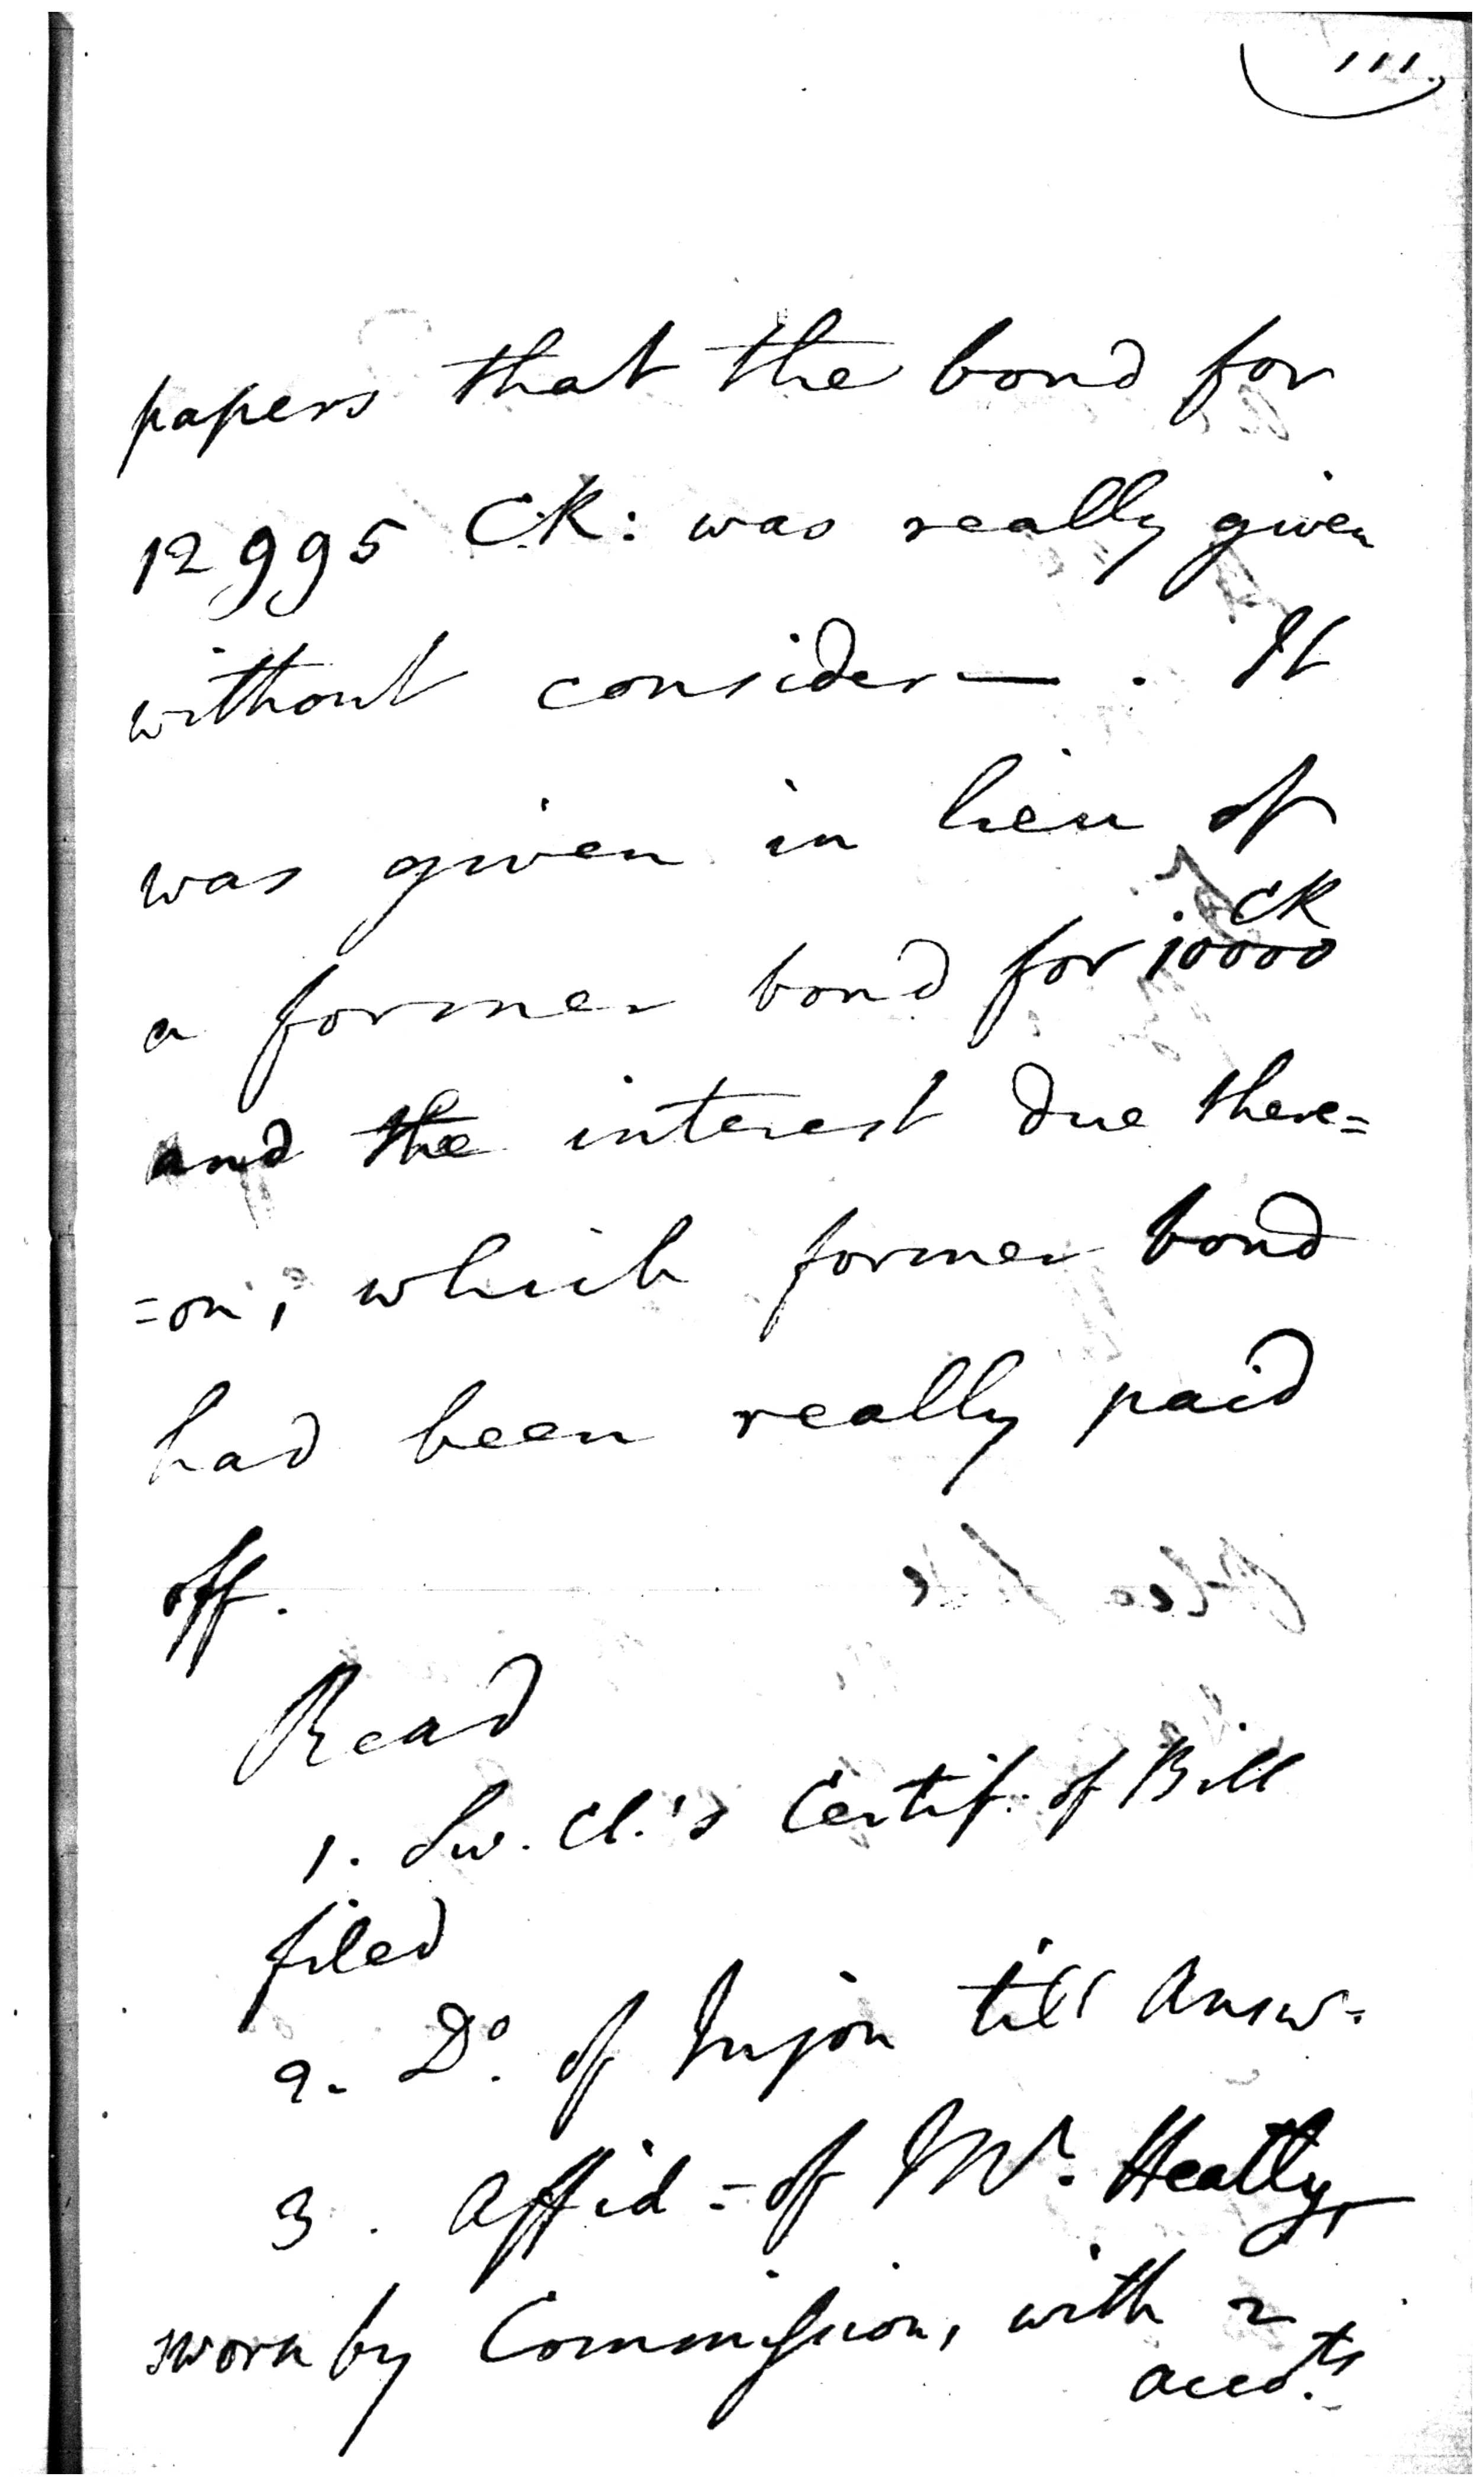 111.
papers that the bond for
12995 CR: was really given
without consider—. It
was given in lieu of
a former bond for 10000 CR
and the interest due there=
=on, which former bond
had been really paid
off.
Read
1. Sw. Cl.'s Certif. of Bill
filed
2. Do. of Injon till Answ-
3. Affid= of Mr. Heatly,
sworn by Commission, with 2
acco.ts